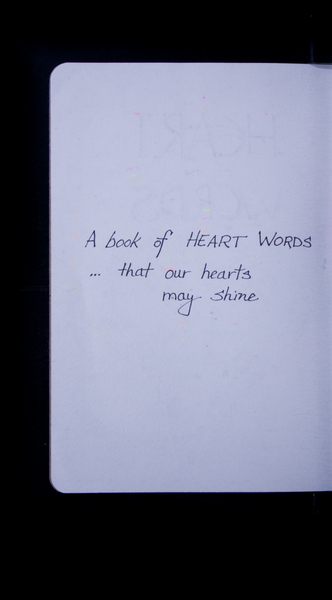 A book of HEART WORDS
... that our hearts
may shine